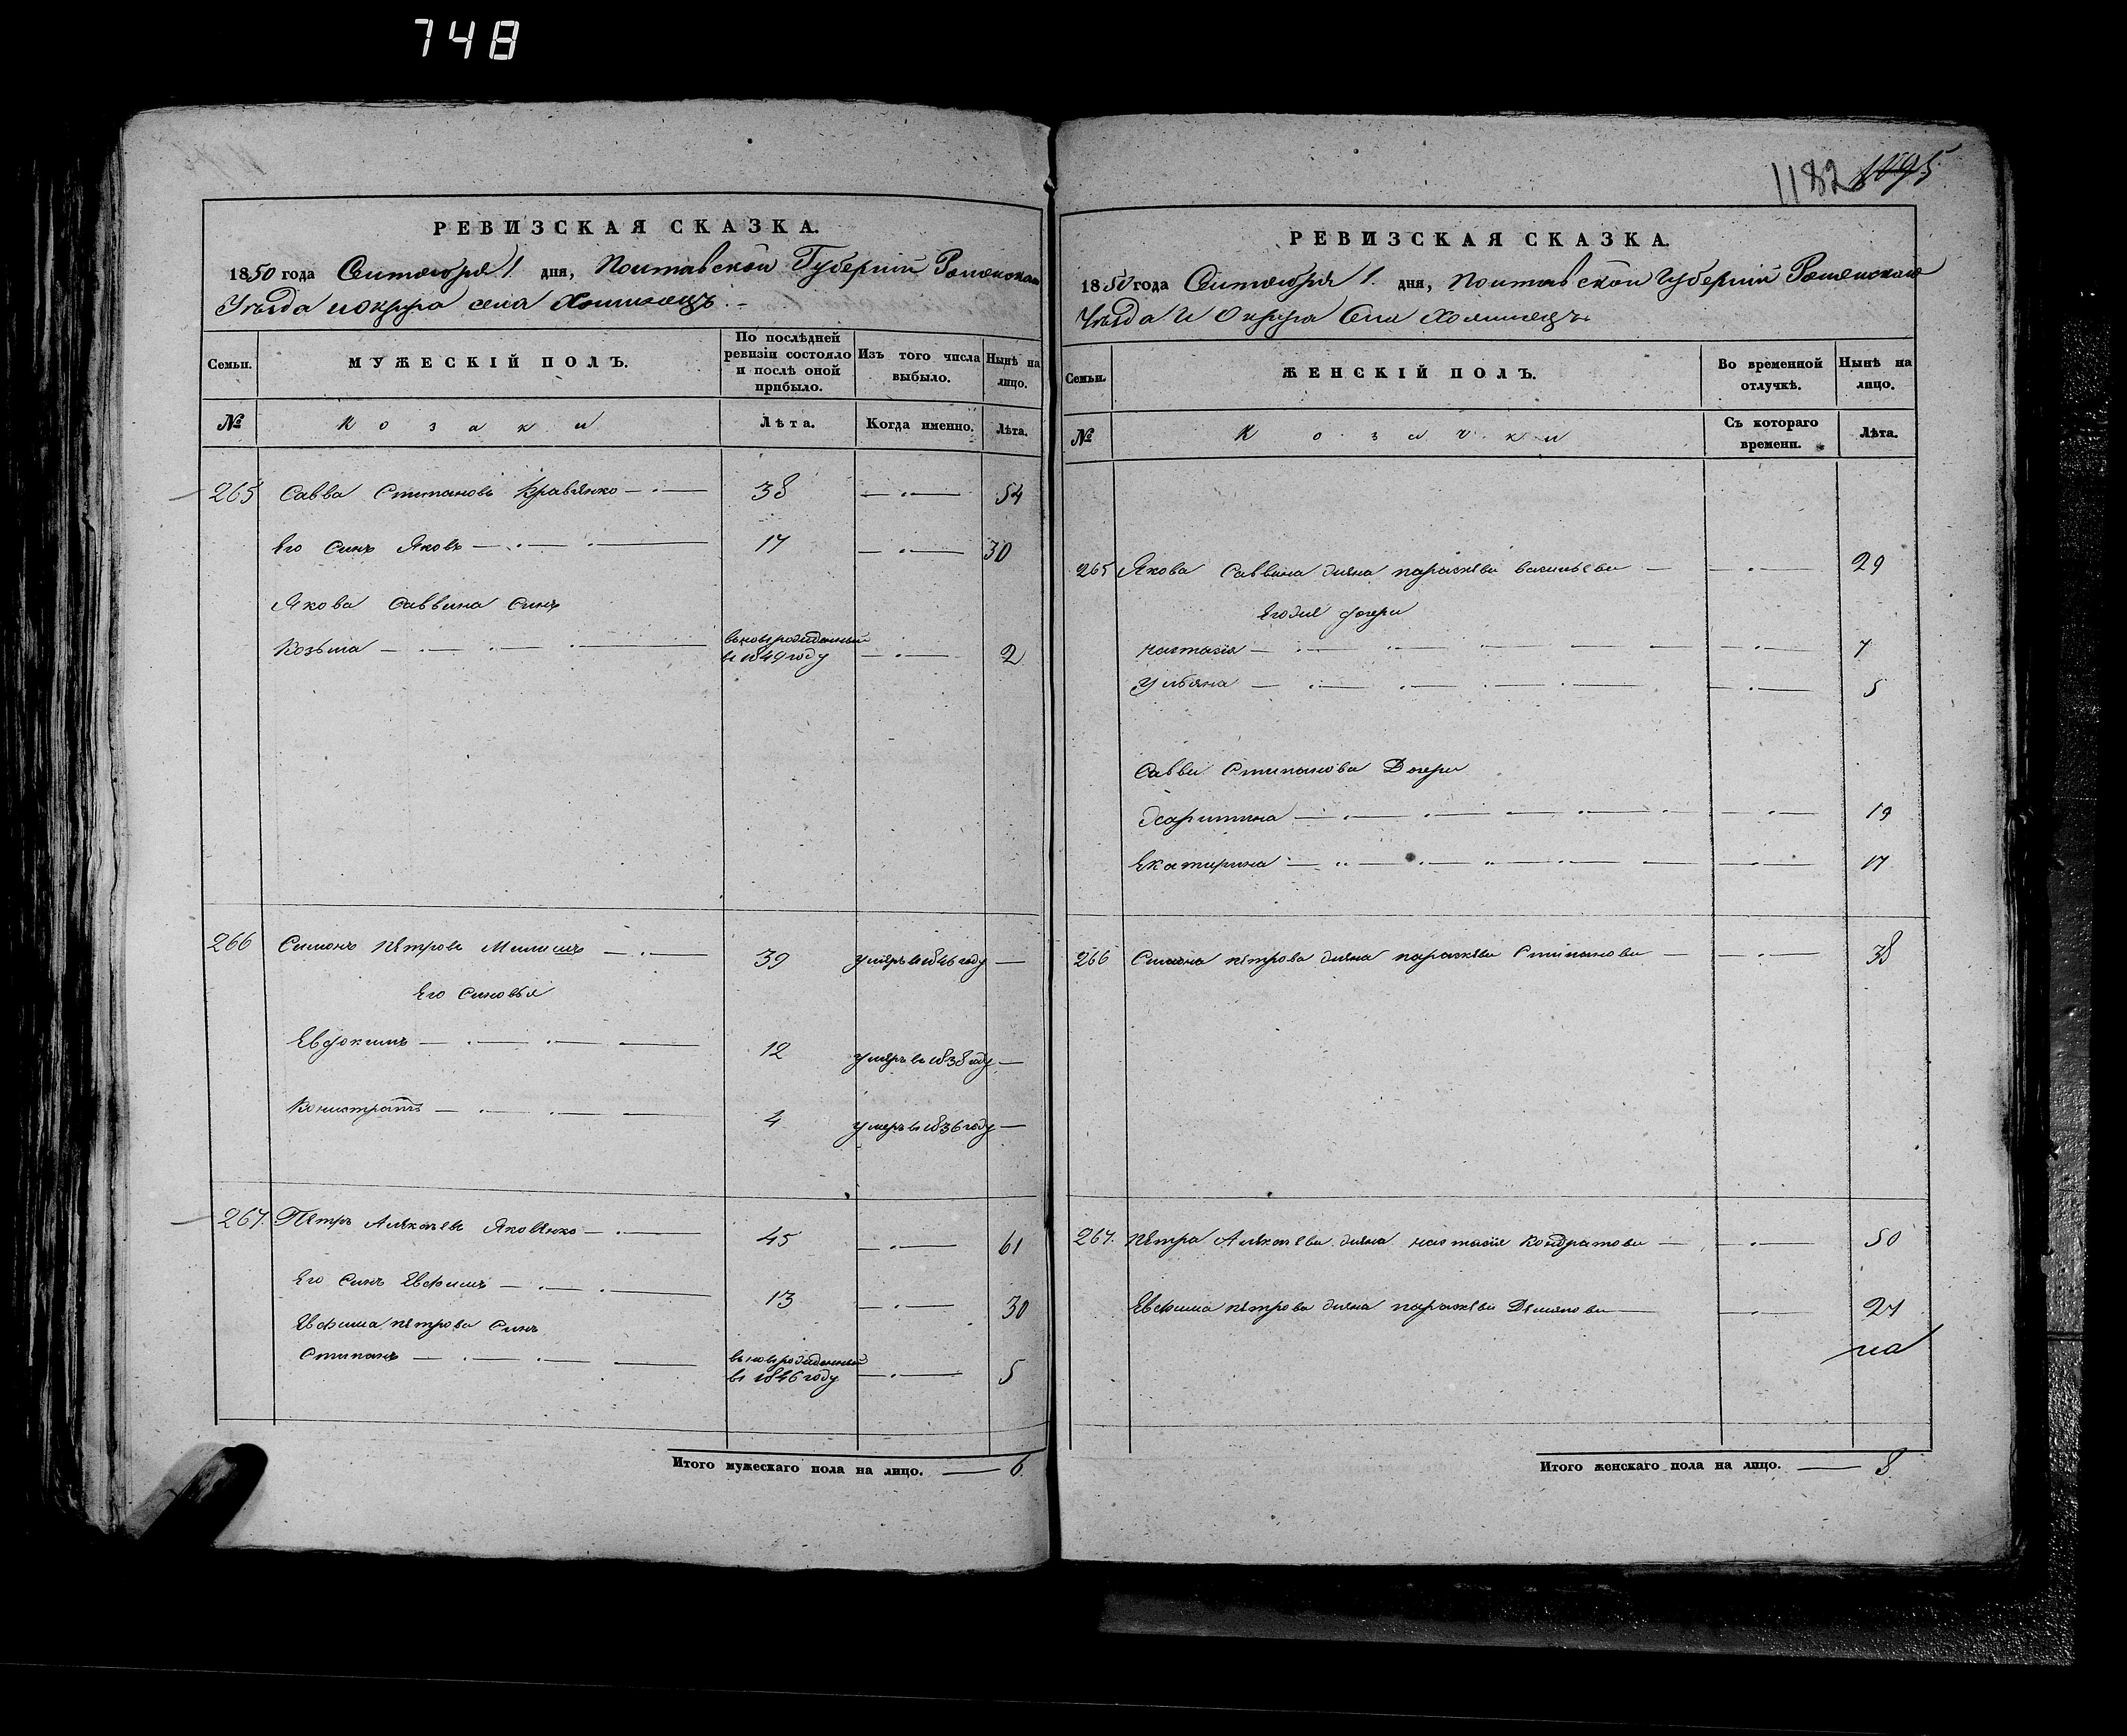 748
РЕВИЗСКАЯ СКАЗКА.
1850 года Сентября 1 дня, Полтавской Губернии Роменского
Уѣзда и округа села Хоминецъ
Семьи.
МУЖЕСКІЙ ПОЛЪ.
По послѣдней ревизіи состояло и послѣ оной прибыло.
Изъ того числа выбыло.
Нынѣ на лицо.
№
Козаки
Лѣта.
Когда именно.
Лѣта.
265 Савва Стипановъ Кравянко 38 54
Его Синъ Яковъ 17 30
Якова Саввина Синъ
Козьма вновърожденный в 1849 году 2
266 Симонъ Петровъ 39 умеръ в 1846 году
Его Синовья
Евдокимъ 12 умеръ в 1838 году
4 умеръ в 1836 году
267. Петръ Яковенко 45 61
Его Синъ Евфимъ 13 30
Евфима Петрова Синъ
Стипанъ вновърожденный в 1846 году 5
Итого мужескаго пола на лицо. 6.
1182 1095
РЕВИЗСКАЯ СКАЗКА.
1850 года Сентября 1. дня, Полтавской Губерніи Роменского
Уѣзда И Округа Села Хоминецъ
Семьи.
ЖЕНСКІЙ ПОЛЪ.
Во временной отлучкѣ.
Нынѣ на лицо.
№
Козачки
Съ котораго времени.
Лѣта.
265 Якова Саввина жена параскева васильева 29
Его дочери
настасія 7
Ульяна 5
Савви Стипанова Дочери
Харитина 19
Екатирина 17
266 Симона петрова жена параскева Стипанова 38
267. Петра жена настасія Кондратова 50
Евфима петрова жена параскева Демянова 27
Итого женскаго пола на лицо. 8